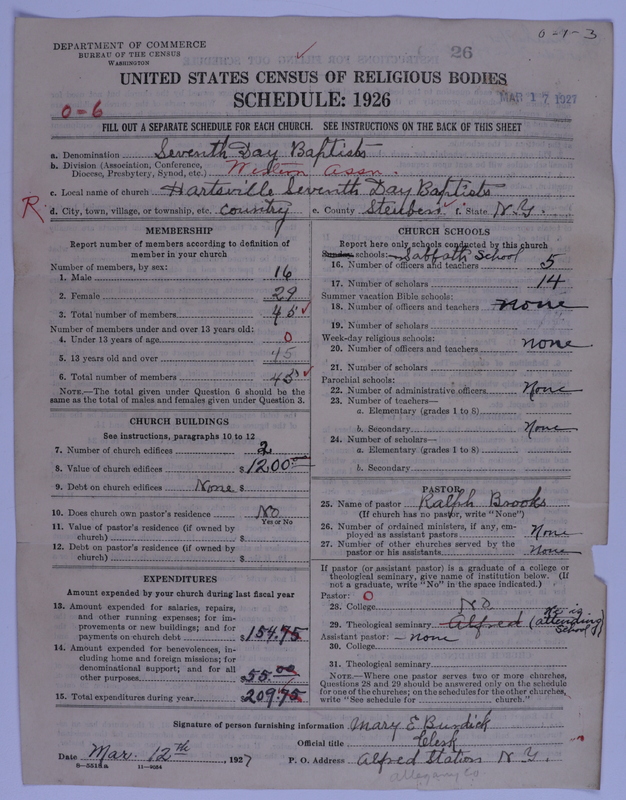 0-1-3
DEPARTMENT OF COMMERCE
BUREAU OF THE CENSUS
WASHINGTON
26
UNITED STATES CENSUS OF RELIGIOUS BODIES
SCHEDULE: 1926
MAR 17 1927
0-6
FILL OUT A SEPARATE SCHEDULE FOR EACH CHURCH. SEE INSTRUCTIONS ON THE BACK OF THIS SHEET
a. Denomination Seventh Day Baptists
b. Division (Association, Conference, Diocese, Presbytery, Synod, etc.) Western Assn.
c. Local name of church Hartsville Seventh Day Baptists
R d. City, town, village, or township, etc. country e. County Steuben f. State N.Y.
MEMBERSHIP
Report number of members according to definition of
member in your church
Number of members, by sex:
1. Male 16
2. Female 29
3. Total number of members 45
Number of members under and over 13 years old:
4. Under 13 years of age 0
5. 13 years old and over 45
6. Total number of members 45
NOTE.—The total given under Question 6 should be the
same as the total of males and females given under Question 3.
CHURCH BUILDINGS
See instructions, paragraphs 10 to 12
7. Number of church edifices 2
8. Value of church edifices $1200.00
9. Debt on church edifices None $
10. Does church own pastor's residence No
Yes or No
11. Value of pastor's residence (if owned by
church) $
12. Debt on pastor's residence (if owned by
church) $
EXPENDITURES
Amount expended by your church during last fiscal year
13. Amount expended for salaries, repairs,
and other running expenses; for im-
provements or new buildings; and for
payments on church debt $154.75
14. Amount expended for benevolences, in-
cluding home and foreign missions; for
denominational support; and for all
other purposes $55.00
15. Total expenditures during year 209.75
CHURCH SCHOOLS
Report here only schools conducted by this church
Sunday schools: Sabbath School
16. Number of officers and teachers 5
17. Number of scholars 14
Summer vacation Bible schools:
18. Number of officers and teachers none
19. Number of scholars
Week-day religious schools:
20. Number of officers and teachers none
21. Number of scholars
Parochial schools:
22. Number of administrative officers None
23. Number of teachers—
a. Elementary (grades 1 to 8)
b. Secondary None
24. Number of scholars—
a. Elementary (grades 1 to 8)
b. Secondary
PASTOR
25. Name of pastor Ralph Brooks
(If church has no pastor, write "None")
26. Number of ordained ministers, if any, em-
ployed as assistant pastors None
27. Number of other churches served by the
pastor or his assistants None
If pastor (or assistant pastor) is a graduate of a college or
theological seminary, give name of institution below. (If
not a graduate, write "No" in the space indicated.)
Pastor: 0
28. College No
29. Theological seminary Alfred (He is attending School)
Assistant pastor: - none
30. College
31. Theological seminary
NOTE.—Where one pastor serves two or more churches,
Questions 28 and 29 should be answered only on the schedule
for one of the churches; on the schedules for the other churches,
write "See schedule for church."
Signature of person furnishing information Mary E Burdick
Official title Clerk
Date Mar. 12th, 1927 P. O. Address Alfred Station N.Y.
8-551a 11-9054
Allegany Co